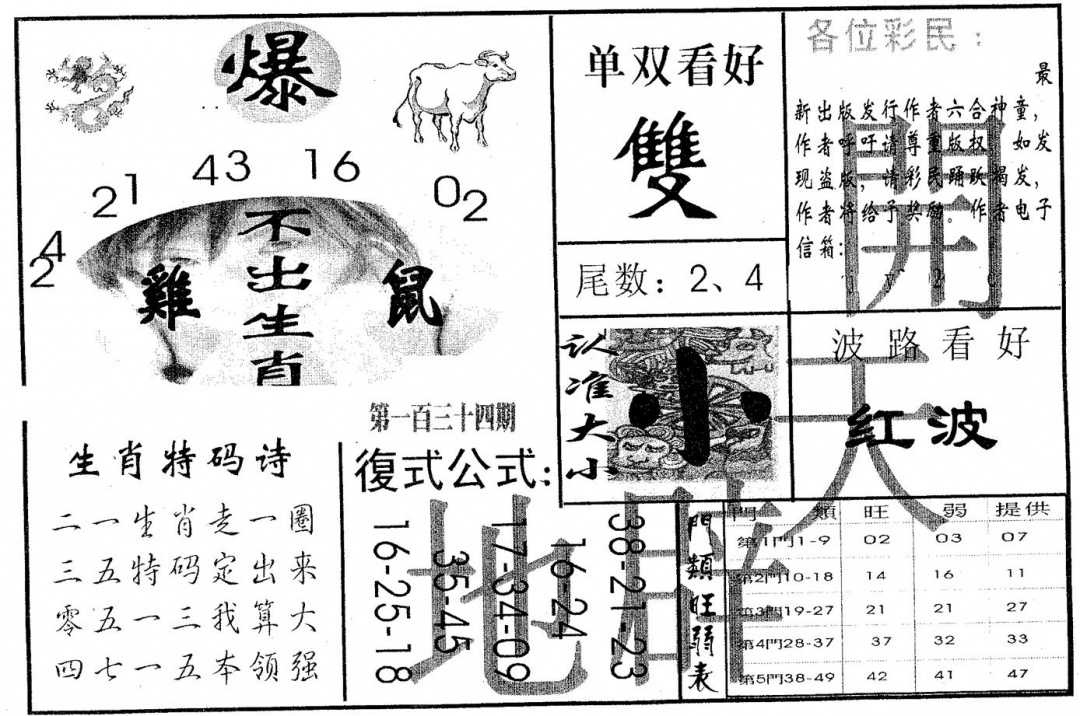 爆
24
21
43
16
02
不出生肖
雞
鼠
单双看好
雙
尾数：2、4
各位彩民：
最
新出版发行作者六合神童，
作者呼吁请尊重版权 如发
现盗版，请彩民踊跃揭发，
作者将给予奖励。作者电子
信箱：
認准大小
小
波路看好
红波
開
天
地
第一百三十四期
生肖特码诗
二一生肖走一圈
三五特码定出来
零五一三我算大
四七一五本领强
復式公式：
16-25-18
35-45
17-34-09
16-24
38-21-23
門類旺弱表
門類 旺 弱 提供
第1門1-9 02 03 07
第2門10-18 14 16 11
第3門19-27 21 21 27
第4門28-37 37 32 33
第5門38-49 42 41 47